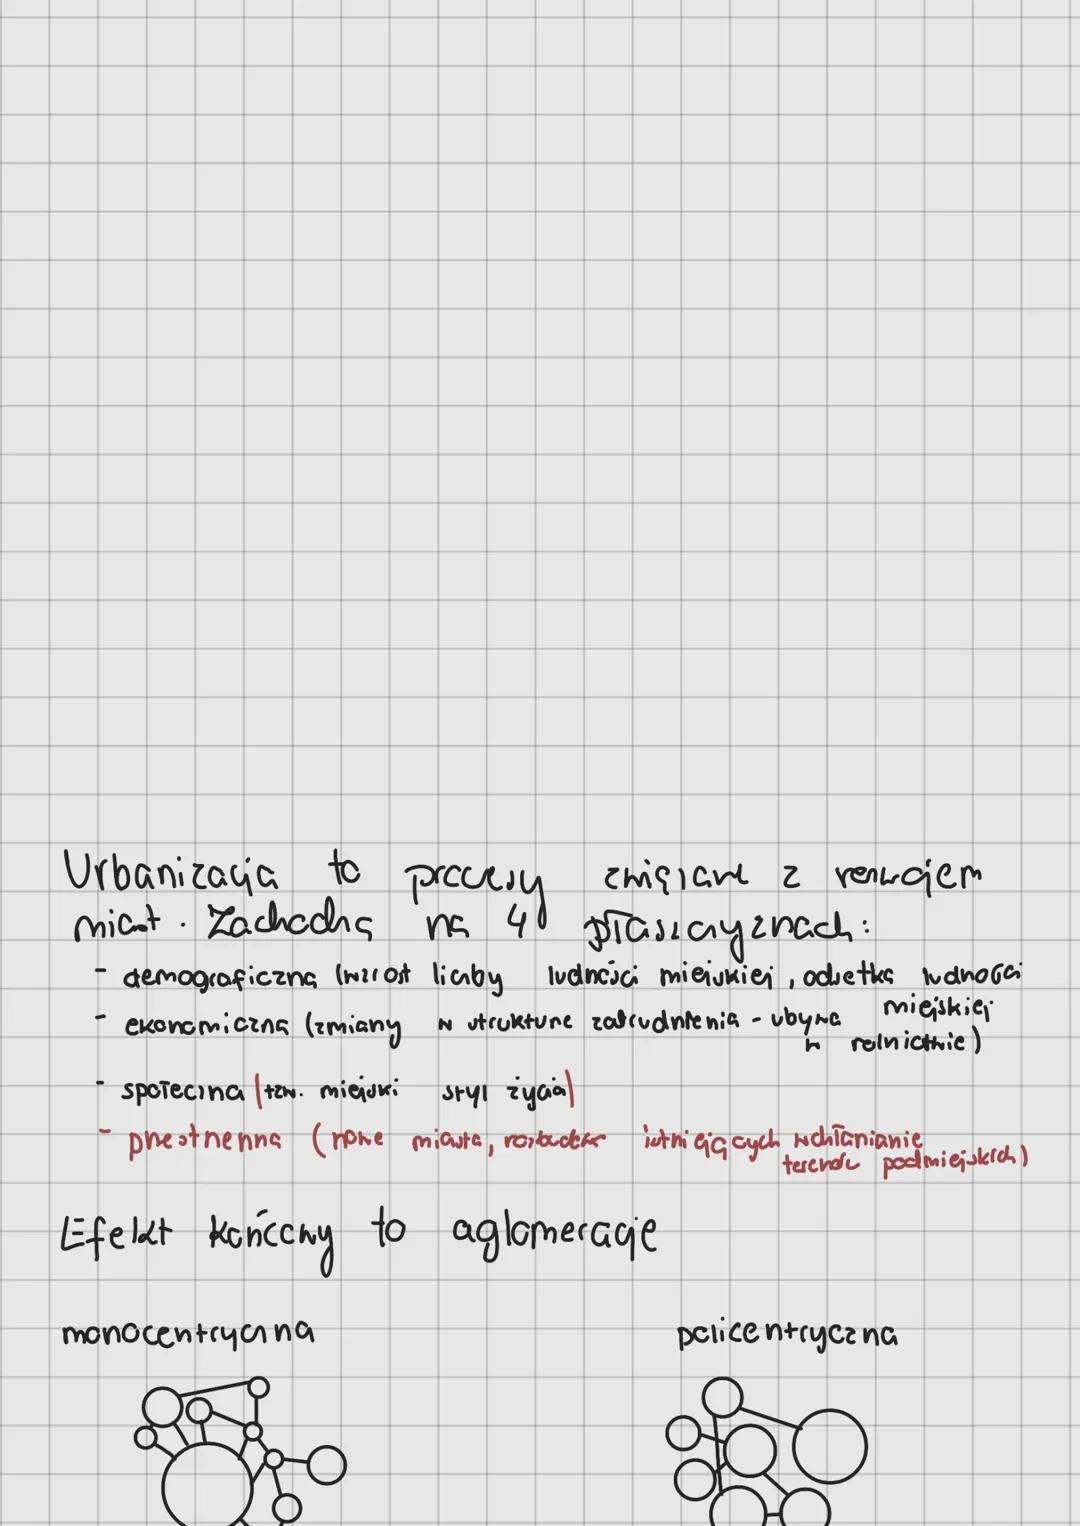 Urbanizacja to procesy związane z rozwojem
miast. Zachodzą na 4 płaszczyznach:
- demograficzna (wzrost liczby ludności miejskiej, odsetka ludności
miejskiej
- ekonomiczna (zmiany w strukturze zatrudnienia - ubywa
w rolnictwie)
- społeczna (tzw. miejski styl życia)
- przestrzenna (nowe miasta, rozbudowa istniejących wchłanianie
terenów podmiejskich)
Efekt końcowy to aglomeracje
monocentryczna policentryczna